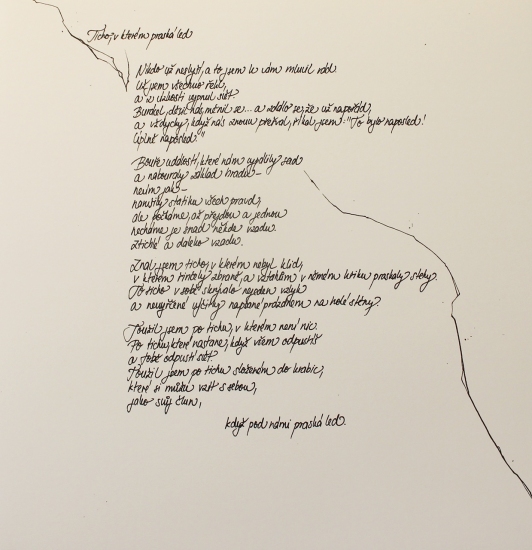 Ticho, v kterém praská led
Nikdo už neslyší, a to jsem k vám mluvil rád.
Už jsem všechno řekl,
a z úzkosti vypnul svět.
Burácel, děsil nás, měnil se... a zdálo se, že už napořád,
a vždycky, když nás znovu překval, říkal jsem: "To bylo naposled!
Úplně naposled."
Bouře událostí, které nám vyvrátily sad
a nabouraly základ hradu –
nevím jak –
narušily statiku všech pravd,
ale počkáme, až přejdou a jednou
necháme je snad někde vzadu.
ztichlé a daleko vzadu.
Znal jsem ticho, v kterém nebyl klid,
v kterém řinčely zbraně, a vztahům v němém křiku praskaly stehy.
To ticho v sobě skrývalo nejeden vzlyk
a nevyřčené výčitky napsané prázdnem na holé stěny.
Toužil jsem po tichu, v kterém není nic.
Po tichu, které nastane, když všem odpustíš
a tobě odpustí svět.
Toužil jsem po tichu složeném do krabic,
které si můžu vzít s sebou,
jako svůj člun,
když pod námi praská led.